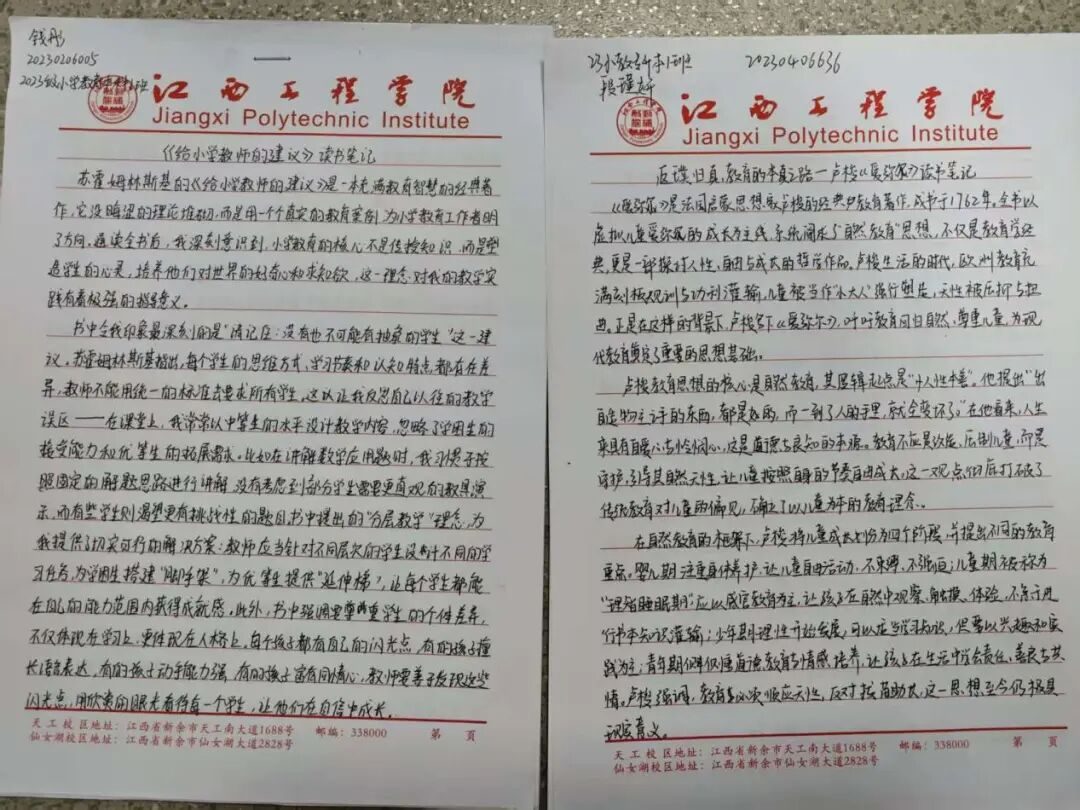 钱彤
20230206005
2023级小学教育本科1班
江西工程学院
Jiangxi Polytechnic Institute
《给小学教师的建议》读书笔记
苏霍姆林斯基的《给小学教师的建议》是一本充满教育智慧的经典著
作，它没晦涩的理论堆砌，而是用一个个真实的教育案例，为小学教育工作者明
了方向。通读全书后，我深刻意识到，小学教育的核心不是传授知识，而是塑
造学生的心灵，培养他们对世界的好奇心和求知欲，这一理念对我的教学实
践有着极强的指导意义。
书中令我印象最深刻的是"请记住：没有也不可能有抽象的学生"这一建
议。苏霍姆林斯基指出，每个学生的思维方式、学习节奏和认知特点都存在差
异，教师不能用统一的标准去要求所有学生。这让我反思自己以往的教学
误区——在课堂上，我常常以中等生的水平设计教学内容，忽略了学困生的
接受能力和优等生的拓展需求。比如在讲解数学应用题时，我习惯于按
照固定的解题思路进行讲解，没有考虑到部分学生需要更直观的教具演
示，而有些学生则渴望更有挑战性的题目。书中提出的"分层教学"理念，为
我提供了切实可行的解决方案：教师应当针对不同层次的学生设计不同的学
习任务，为学困生搭建"脚手架"，为优等生提供"延伸梯"，让每个学生都能
在自己的能力范围内获得成就感。此外，书中强调要尊重学生的个体差异，
不仅体现在学习上，更体现在人格上。每个孩子都有自己的闪光点，有的孩子擅
长语言表达，有的孩子动手能力强，有的孩子富有同情心，教师要善于发现这些
闪光点，用欣赏的眼光看待每一个学生，让他们在自信中成长。
天工校区地址：江西省新余市天工南大道1688号 邮编：338000 第 页
仙女湖校区地址：江西省新余市仙女湖大道2828号
23小教本1班 20230406636
江西工程学院
Jiangxi Polytechnic Institute
返璞归真,教育的本真之路—卢梭《爱弥尔》读书笔记
《爱弥尔》是法国启蒙思想家卢梭的经典教育著作,成书于1762年。全书以
虚拟儿童爱弥尔的成长为主线,系统阐述了"自然教育"思想,不仅是教育学经
典,更是一部探讨人性、自由与成长的哲学作品。卢梭生活的时代,欧洲教育充
满刻板规训与功利灌输,儿童被当作"小大人"强行塑造,天性被压抑与扭
曲。正是在这样的背景下,卢梭写下《爱弥尔》,呼吁教育回归自然、尊重儿童,为现
代教育奠定了重要的思想基础。
卢梭教育思想的核心是自然教育,其逻辑起点是"人性本善"。他提出"出
自造物主之手的东西,都是好的,而一到了人的手里,就全变坏了。"在他看来,人生
来具有自爱心与怜悯心,这是道德与良知的本源。教育不应是改造、压制儿童,而是
守护、引导其自然天性,让儿童按照自身的节奏自由成长。这一观点彻底打破了
传统教育对儿童的偏见,确立了以儿童为本的教育理念。
在自然教育的框架下,卢梭将儿童成长划分为四个阶段,并提出不同的教育
重点。婴儿期注重身体养护,让儿童自由活动,不束缚、不强迫;儿童期被称为
"理智睡眠期"应以感官教育为主,让孩子在自然中观察、触摸、体验,不急于进
行书本知识灌输;少年期理性开始发展,可以适当学习知识,但要以兴趣和实
践为主;青年期侧重道德教育与情感培养,让孩子在生活中学会责任、善良与共
情。卢梭强调,教育必须顺应天性,反对拔苗助长,这一思想至今仍极具
现实意义。
天工校区地址：江西省新余市天工南大道1688号 邮编：338000 第 页
仙女湖校区地址：江西省新余市仙女湖大道2828号